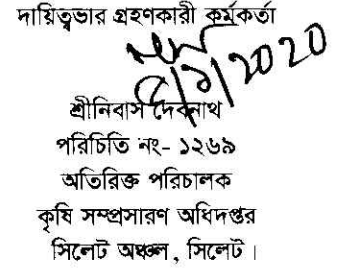 দায়িত্বভার গ্রহণকারী কর্মকর্তা
শ্রীনিবাস দেবনাথ
পরিচিতি নং- ১২৬৯
অতিরিক্ত পরিচালক
কৃষি সম্প্রসারণ অধিদপ্তর
সিলেট অঞ্চল, সিলেট।